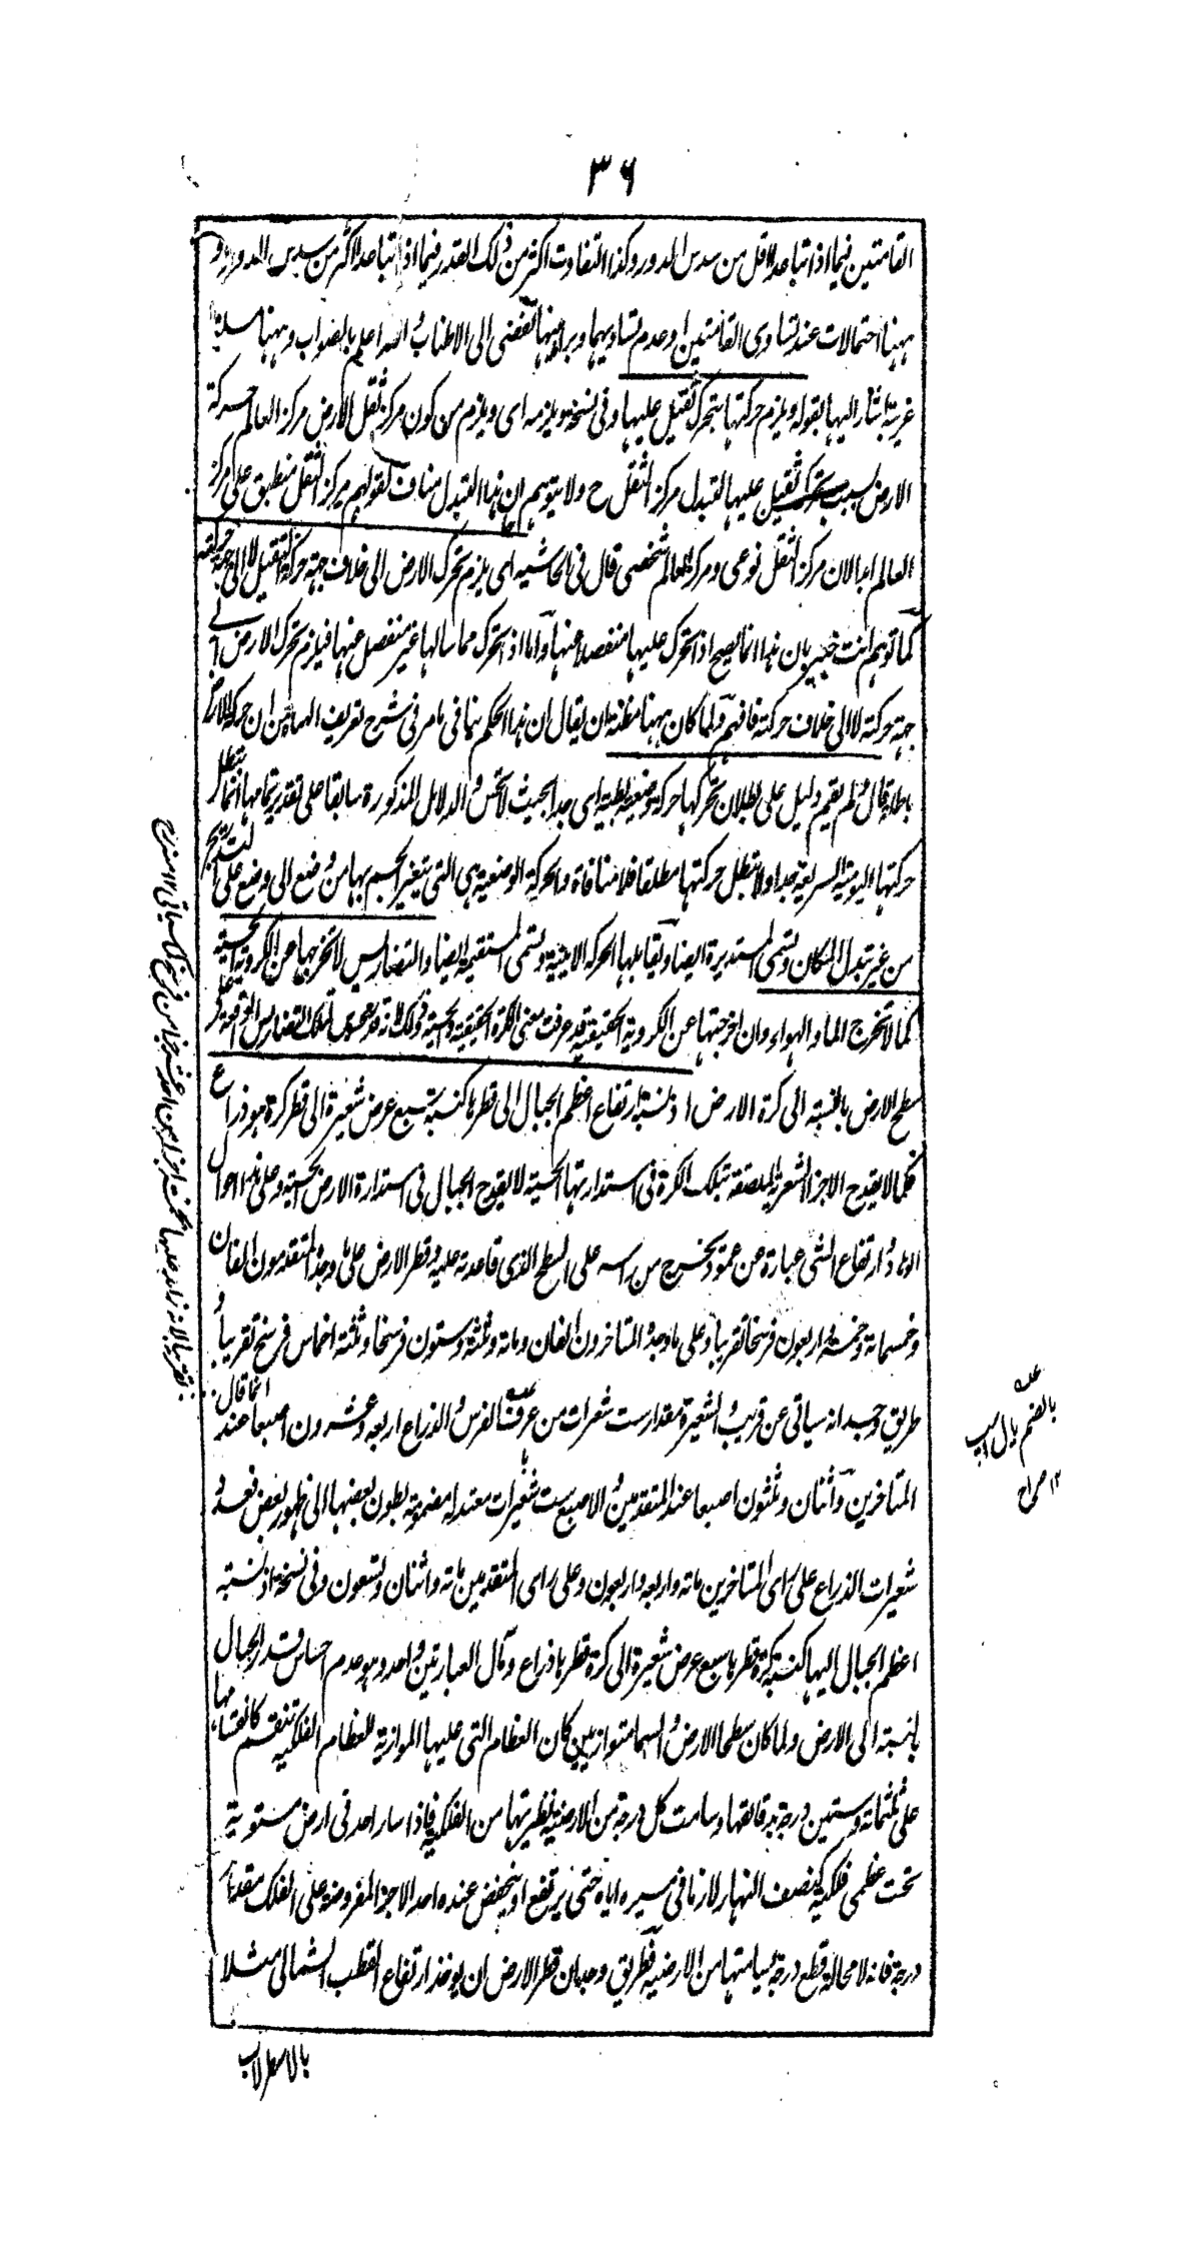 ٣٦
القامتين فيما اذا تباعدا اقل من سدس الدور وكذا التفاوت اكثر من ذلك القدر فيما اذا تباعدا اكثر من سدس الدور و
ههنا احتمالات عند تساوى القامتين او عدم تساويهما وبراهينها تفضى الى الاطناب واللہ اعلم بالصواب وههنا مسئلة
غريبة اشار اليها بقوله ويلزم حركتها بتحرك ثقيل عليها وفى نسخة ويلزمه اى ويلزم من كون مركز ثقل الارض مركز العالم حركة
الارض بسبب تحرك ثقيل عليها لتبدل مركز الثقل ح ولا يتوهم ان هذا التبدل مناف لقولهم مركز الثقل منطبق على مركز
العالم ابدا لان مركز الثقل نوعى ومركز العالم شخصى قال فى الحاشيه اى يلزم تحرك الارض الى خلاف جهة حركة الثقيل لا الى جهة حركته
كما توهم انت خبير بان هذا انما يصح اذا تحرك عليها منفصلا عنها واما اذا تحرك مماسا لها غير منفصل عنها فيلزم تحرك الارض الى
جهة حركته لا الى خلاف حركته فافهم ولما كان ههنا مظنة ان يقال ان هذا الحكم ينافى مامر فى شرح تعريف الهيئة من ان حركة الارض
باطلة قال ولم يقم دليل على بطلان تحركها حركة وضعية بطيئة اى جدا بحيث لا تحس والدلائل المذكورة سابقا على تقدير تمامها انما تبطل
حركتها اليومية السريعة جدا ولا تبطل حركتها مطلقا فلا منافاة والحركة الوضعية هى التى يتغير الجسم بها من وضع الى وضع على التدريج
من غير تبدل المكان وتسمى المستديرة ايضا ويقابلها الحركة الاينية وتسمى المستقيمة ايضا والتضاريس لا تخرجها عن الكروية الحسية
كما لا تخرج الماء والهواء وان اخرجتها عن الكروية الحقيقية قد عرفت معنى الكرة الحقيقية والحسية وذلك لانه قدر تلك التضاريس الواقعة على
سطح الارض بالنسبة الى كرة الارض اذ نسبة ارتفاع اعظم الجبال الى قطرها كنسبة سبع عرض شعيرة الى قطر كرة هو ذراع
فكما لا يقدح الاجزاء الشعرية الملصقة بتلك الكرة فى استدارتها الحسية لا يقدح الجبال فى استدارة الارض الحسية وعلى هذا احوال
الوهاد وارتفاع الشى عبارة عن عمود يخرج من راسه على السطح الذى قاعدته عليه وقطر الارض على ما وجده المتقدمون الفان
وخمسمائة وخمسة واربعون فرسخا تقريبا وعلى ما وجده المتاخرون الفان ومائة وثلثة وستون فرسخا وثلثة اخماس فرسخ تقريبا و
طريق وجدانه سياتى عن قريب والشعيرة مقدار ست شعرات من عرف الفرس والذراع اربعة وعشرون اصبعا عند
المتاخرين واثنان وثلثون اصبعا عند المتقدمين والاصبع ست شعيرات معتدلة مضمومة بطون بعضها الى ظهور بعض فعدد
شعيرات الذراع على راى المتاخرين مائة واربعة واربعون وعلى راى المتقدمين مائة واثنان وتسعون وفى نسخة اذ نسبة
اعظم الجبال اليها كنسبة كرة قطرها سبع عرض شعيرة الى كرة قطرها ذراع ومآل العبارتين واحد وهو عدم احساس قدر الجبال
بالنسبة الى الارض ولما كان سطحا الارض والسماء متوازيين كان العظام التى عليها الموازية للعظام الفلكية تنقسم كانقسامها
على ثلثمائة وستين درجة بدقائقها وسامت كل درجة من الارضية نظيرتها من الفلكية فاذا سار احد فى ارض مستوية
تحت عظمى فلكية كنصف النهار لازما فى سيره اياه حتى يرتفع او ينخفض عنده احد الاجزاء المفروضة على الفلك مقدار
درجة فانه لا محالة قطع درجة يسامتها من الارضية فطريق وجدان قطر الارض ان يوخذ ارتفاع القطب الشمالى مثلا
بالاسطرلاب
انما قال
عه
بالضم يال اسپ
١٢ صراح